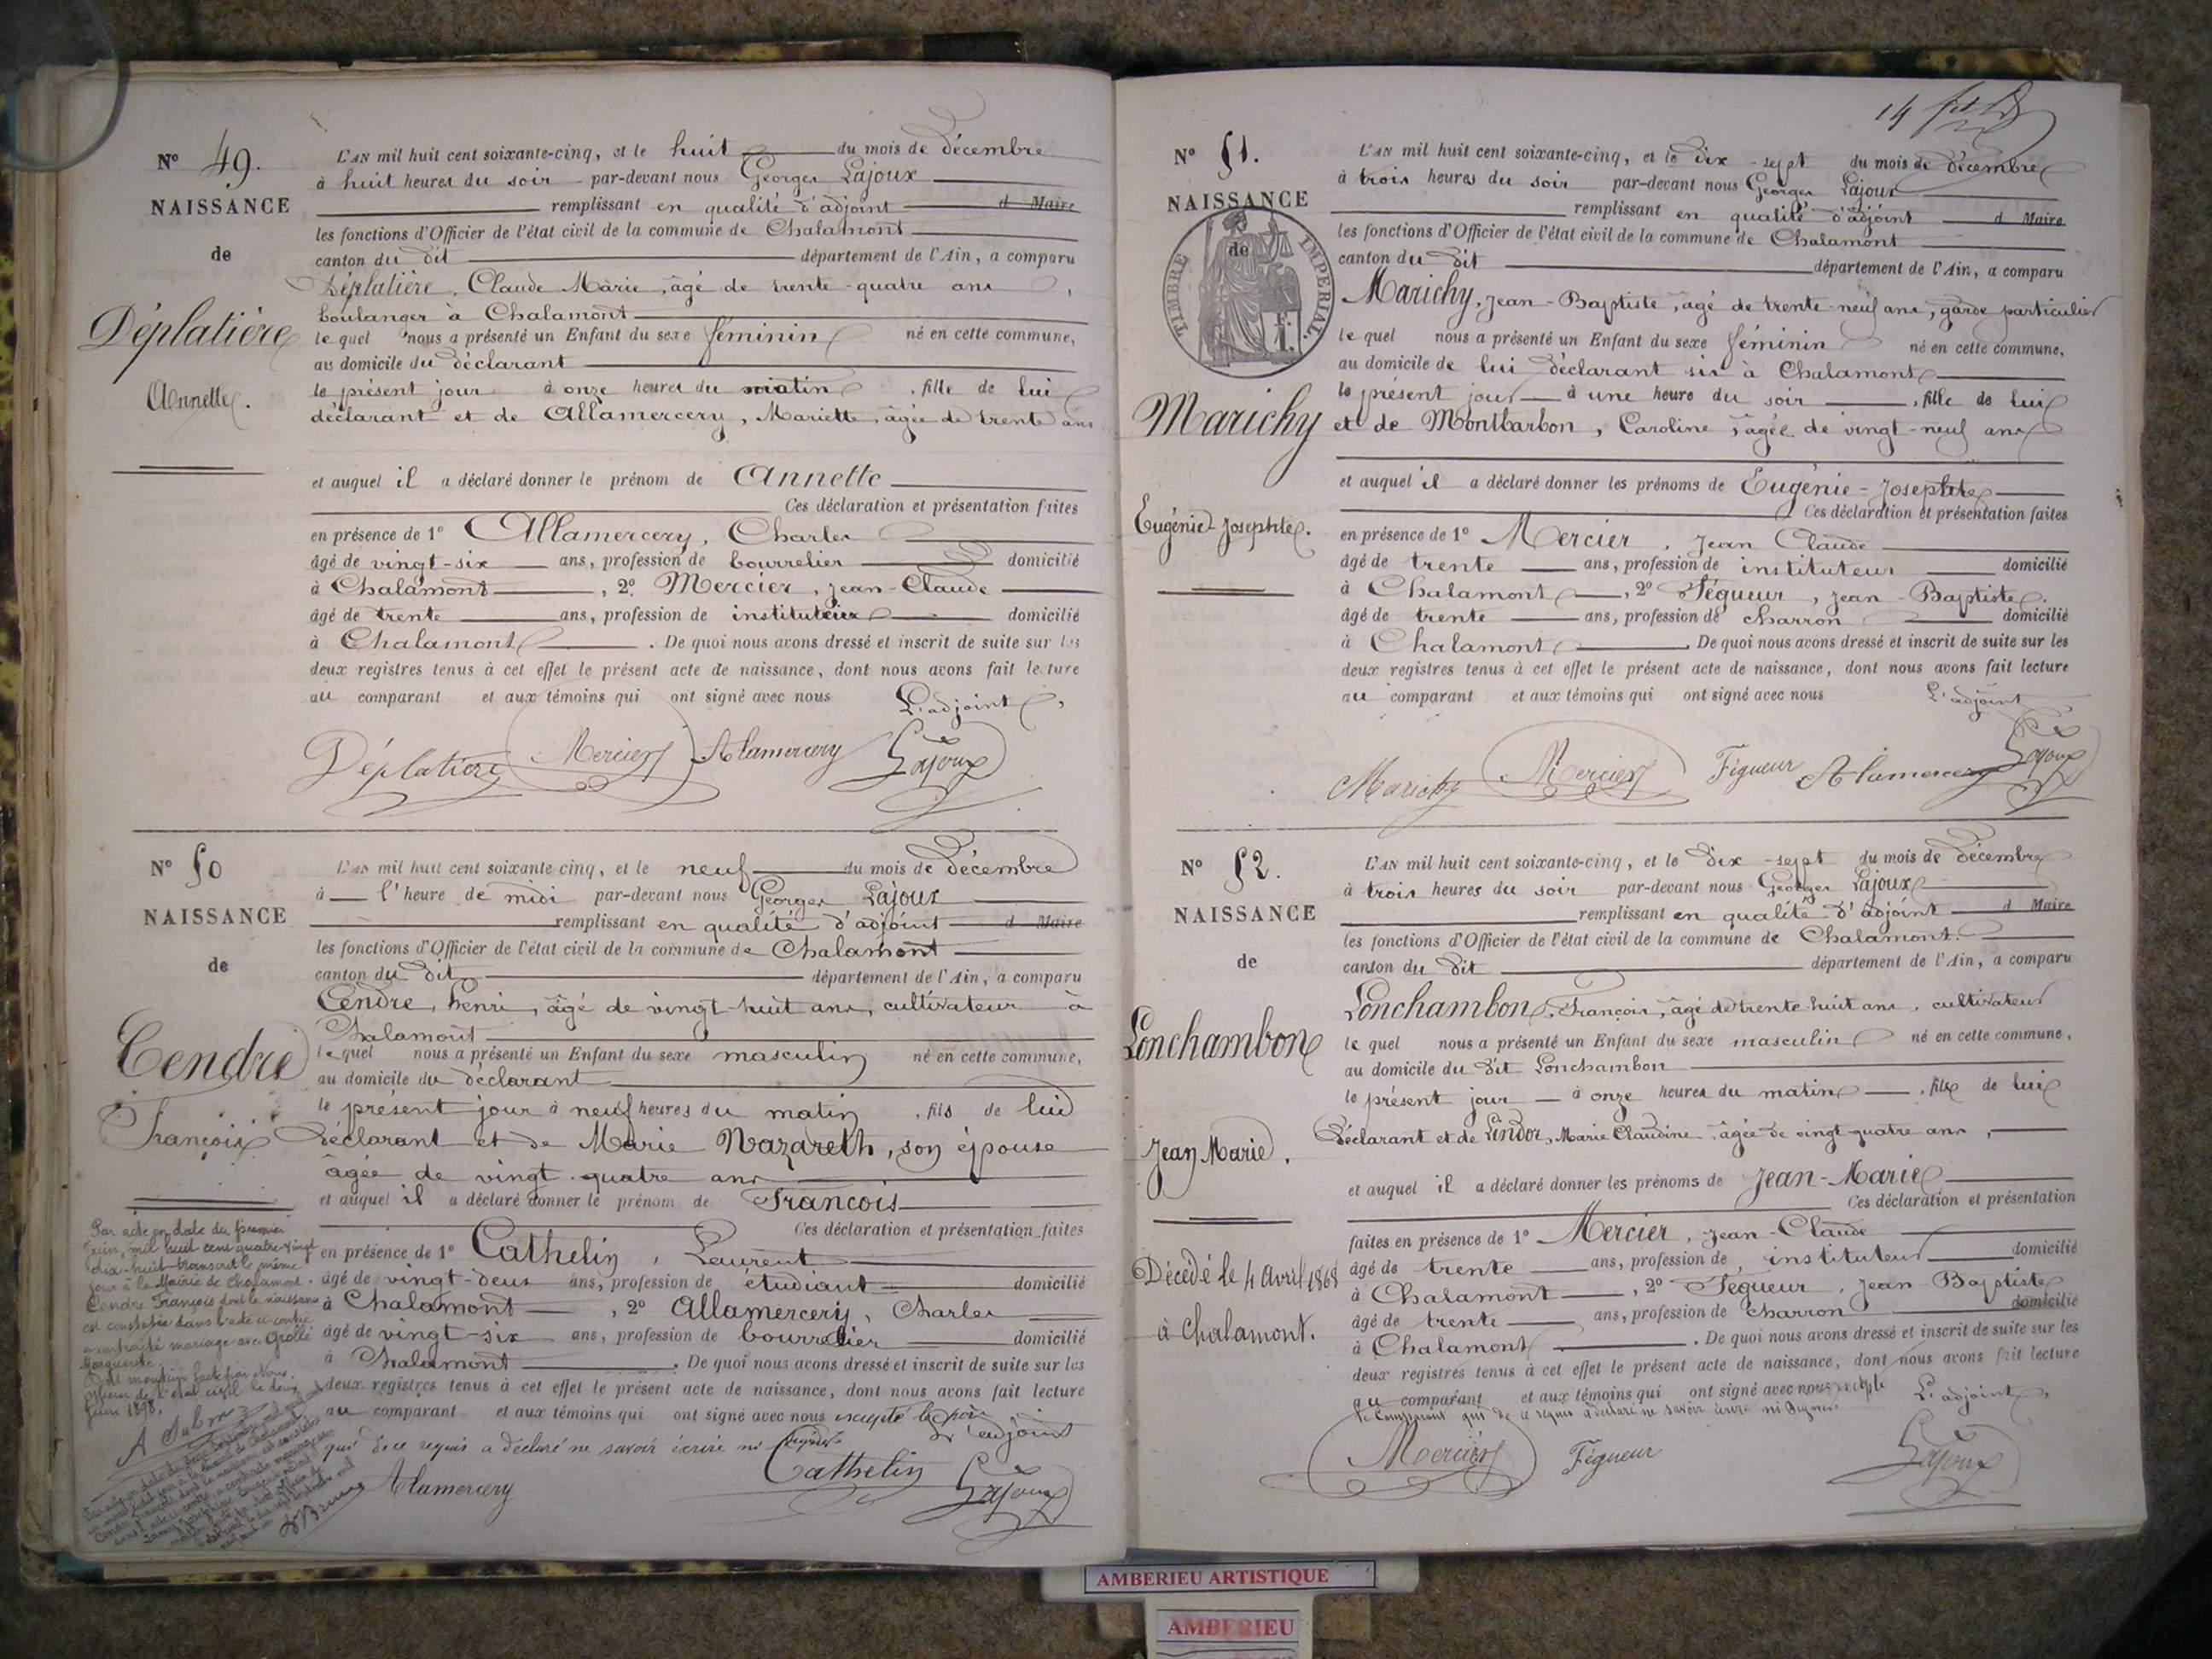 N° 49.
NAISSANCE
de
Déplatière
Annette.
L'AN mil huit cent soixante-cinq, et le huit du mois de décembre
à huit heures du soir par-devant nous Georges Lajoux
remplissant en qualité d'adjoint d Maire
les fonctions d'Officier de l'état civil de la commune de Chalamont
canton du dit département de l'Ain, a comparu
Déplatière, Claude Marie, âgé de trente-quatre ans,
boulanger à Chalamont
le quel nous a présenté un Enfant du sexe féminin né en cette commune,
au domicile du déclarant
le présent jour à onze heures du matin, fille de lui
déclarant et de Allamercery, Mariette, âgée de trente ans
et auquel il a déclaré donner le prénom de Annette
Ces déclaration et présentation faites
en présence de 1° Allamercery, Charles
âgé de vingt-six ans, profession de bourrelier domicilié
à Chalamont, 2° Mercier, Jean-Claude
âgé de trente ans, profession de instituteur domicilié
à Chalamont. De quoi nous avons dressé et inscrit de suite sur les
deux registres tenus à cet effet le présent acte de naissance, dont nous avons fait lecture
au comparant et aux témoins qui ont signé avec nous L'adjoint,
Déplatière Mercier Alamercery Lajoux
N° 50
NAISSANCE
de
Cendre
François
L'AN mil huit cent soixante-cinq, et le neuf du mois de décembre
à l'heure de midi par-devant nous Georges Lajoux
remplissant en qualité d'adjoint d Maire
les fonctions d'Officier de l'état civil de la commune de Chalamont
canton du dit département de l'Ain, a comparu
Cendre, henri, âgé de vingt-huit ans, cultivateur à
Chalamont
le quel nous a présenté un Enfant du sexe masculin né en cette commune,
au domicile du déclarant
le présent jour à neuf heures du matin, fils de lui
déclarant et de Marie Nazareth, son épouse
âgée de vingt-quatre ans
et auquel il a déclaré donner le prénom de François
Ces déclaration et présentation faites
en présence de 1° Cathelin, Laurent
âgé de vingt-deux ans, profession de étudiant domicilié
à Chalamont, 2° Allamercery, Charles
âgé de vingt-six ans, profession de bourrelier domicilié
à Chalamont. De quoi nous avons dressé et inscrit de suite sur les
deux registres tenus à cet effet le présent acte de naissance, dont nous avons fait lecture
au comparant et aux témoins qui ont signé avec nous excepté le père L'adjoint
qui de ce requis a déclaré ne savoir écrire ni signer
Alamercery Cathelin Lajoux
Par acte en date du premier
Juin, mil huit cent quatre-vingt
dix-huit transcrit le même
jour à la Mairie de Chalamont,
Cendre François dont la naissance
est constatée dans l'acte ci-contre
a contracté mariage avec Grollé
Marguerite
Dont mention faite par Nous
officier de l'état civil le deux
Juin 1898.
14
N° 51.
NAISSANCE
de
TIMBRE IMPERIAL
Marichy
Eugénie-Josephte.
L'AN mil huit cent soixante-cinq, et le dix-sept du mois de décembre
à trois heures du soir par-devant nous Georges Lajoux
remplissant en qualité d'adjoint d Maire
les fonctions d'Officier de l'état civil de la commune de Chalamont
canton du dit département de l'Ain, a comparu
Marichy, Jean-Baptiste, âgé de trente-neuf ans, garde particulier
le quel nous a présenté un Enfant du sexe féminin né en cette commune,
au domicile de lui déclarant sis à Chalamont
le présent jour à une heure du soir, fille de lui
et de Montbarbon, Caroline, âgée de vingt-neuf ans
et auquel il a déclaré donner les prénoms de Eugénie-Josephte
Ces déclaration et présentation faites
en présence de 1° Mercier, Jean Claude
âgé de trente ans, profession de instituteur domicilié
à Chalamont, 2° Fégueur, Jean-Baptiste.
âgé de trente ans, profession de charron domicilié
à Chalamont. De quoi nous avons dressé et inscrit de suite sur les
deux registres tenus à cet effet le présent acte de naissance, dont nous avons fait lecture
au comparant et aux témoins qui ont signé avec nous L'adjoint
Marichy Mercier Fégueur Alamercery Lajoux
N° 52.
NAISSANCE
de
Lonchambon
Jean Marie.
Décédé le 4 avril 1868
à Chalamont.
L'AN mil huit cent soixante-cinq, et le dix-sept du mois de décembre
à trois heures du soir par-devant nous Georges Lajoux
remplissant en qualité d'adjoint d Maire
les fonctions d'Officier de l'état civil de la commune de Chalamont.
canton du dit département de l'Ain, a comparu
Lonchambon, François, âgé de trente-huit ans, cultivateur
le quel nous a présenté un Enfant du sexe masculin né en cette commune,
au domicile du dit Lonchambon
le présent jour à onze heures du matin, fils de lui
déclarant et de Lindor, Marie Claudine, âgée de vingt-quatre ans,
et auquel il a déclaré donner les prénoms de Jean-Marie
Ces déclaration et présentation
faites en présence de 1° Mercier, Jean-Claude
âgé de trente ans, profession de instituteur domicilié
à Chalamont, 2° Fégueur, Jean Baptiste
âgé de trente ans, profession de charron domicilié
à Chalamont. De quoi nous avons dressé et inscrit de suite sur les
deux registres tenus à cet effet le présent acte de naissance, dont nous avons fait lecture
au comparant et aux témoins qui ont signé avec nous excepté L'adjoint,
le comparant qui de ce requis a déclaré ne savoir écrire ni signer
Mercier Fégueur Lajoux
AMBERIEU ARTISTIQUE
AMBERIEU